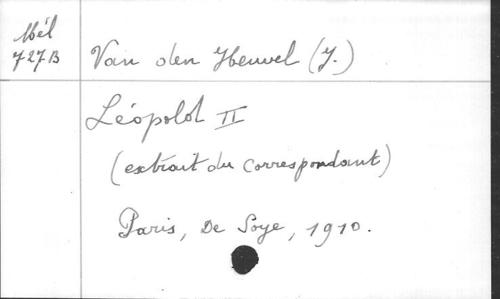 Mél
727B
Van den Heuvel (J.)
Léopold II
(extrait du Correspondant)
Paris, De Soye, 1910.